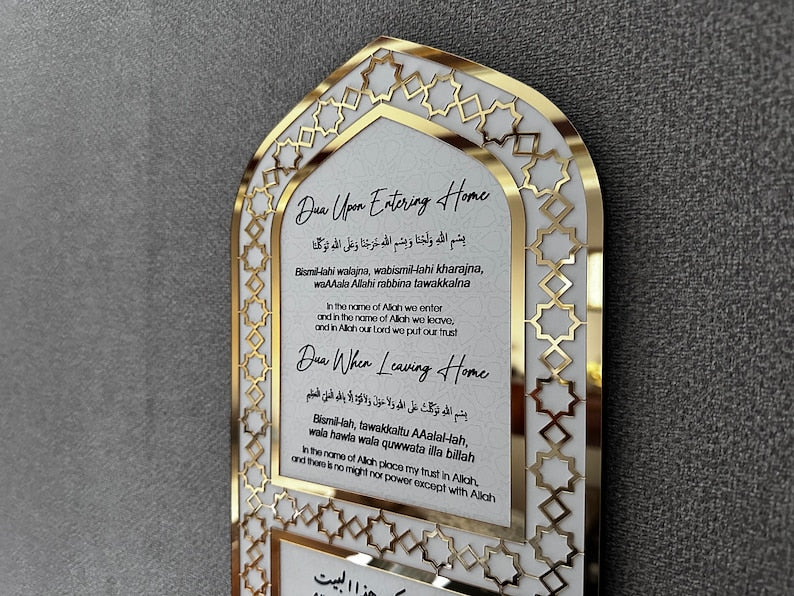 Dua Upon Entering Home
بِسْمِ اللهِ وَلَجْنَا وَبِسْمِ اللهِ خَرَجْنَا وَعَلَى اللهِ تَوَكَّلْنَا
Bismil-lahi walajna, wabismil-lahi kharajna,
waAAala Allahi rabbina tawakkalna
In the name of Allah we enter
and in the name of Allah we leave,
and in Allah our Lord we put our trust
Dua When Leaving Home
بِسْمِ اللهِ تَوَكَّلْتُ عَلَى اللهِ وَلَا حَوْلَ وَلَا قُوَّةَ إِلَّا بِاللهِ الْعَلِيِّ الْعَظِيْمِ
Bismil-lah, tawakkaltu AAalal-lah,
wala hawla wala quwwata illa billah
In the name of Allah place my trust in Allah,
and there is no might nor power except with Allah
هذا البيت